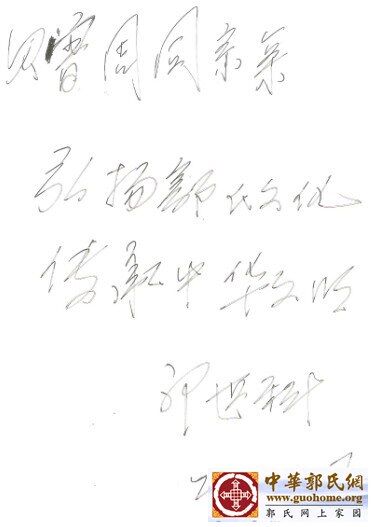 赠周同宗弟
弘扬郭氏文化
传承中华文明
郭世科
中華郭氏網
www.guohome.org
郭氏网上家园